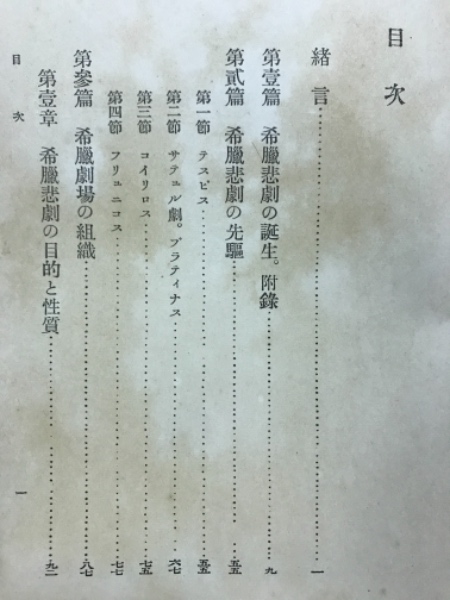 目次
緒言……一
第壹篇 希臘悲劇の誕生。附錄……九
第貳篇 希臘悲劇の先驅……五五
第一節 テスピス……五五
第二節 サテュル劇。プラティナス……六七
第三節 コイリロス……七五
第四節 フリュニコス……七七
第參篇 希臘劇場の組織……八七
第壹章 希臘悲劇の目的と性質……九二
目次
一